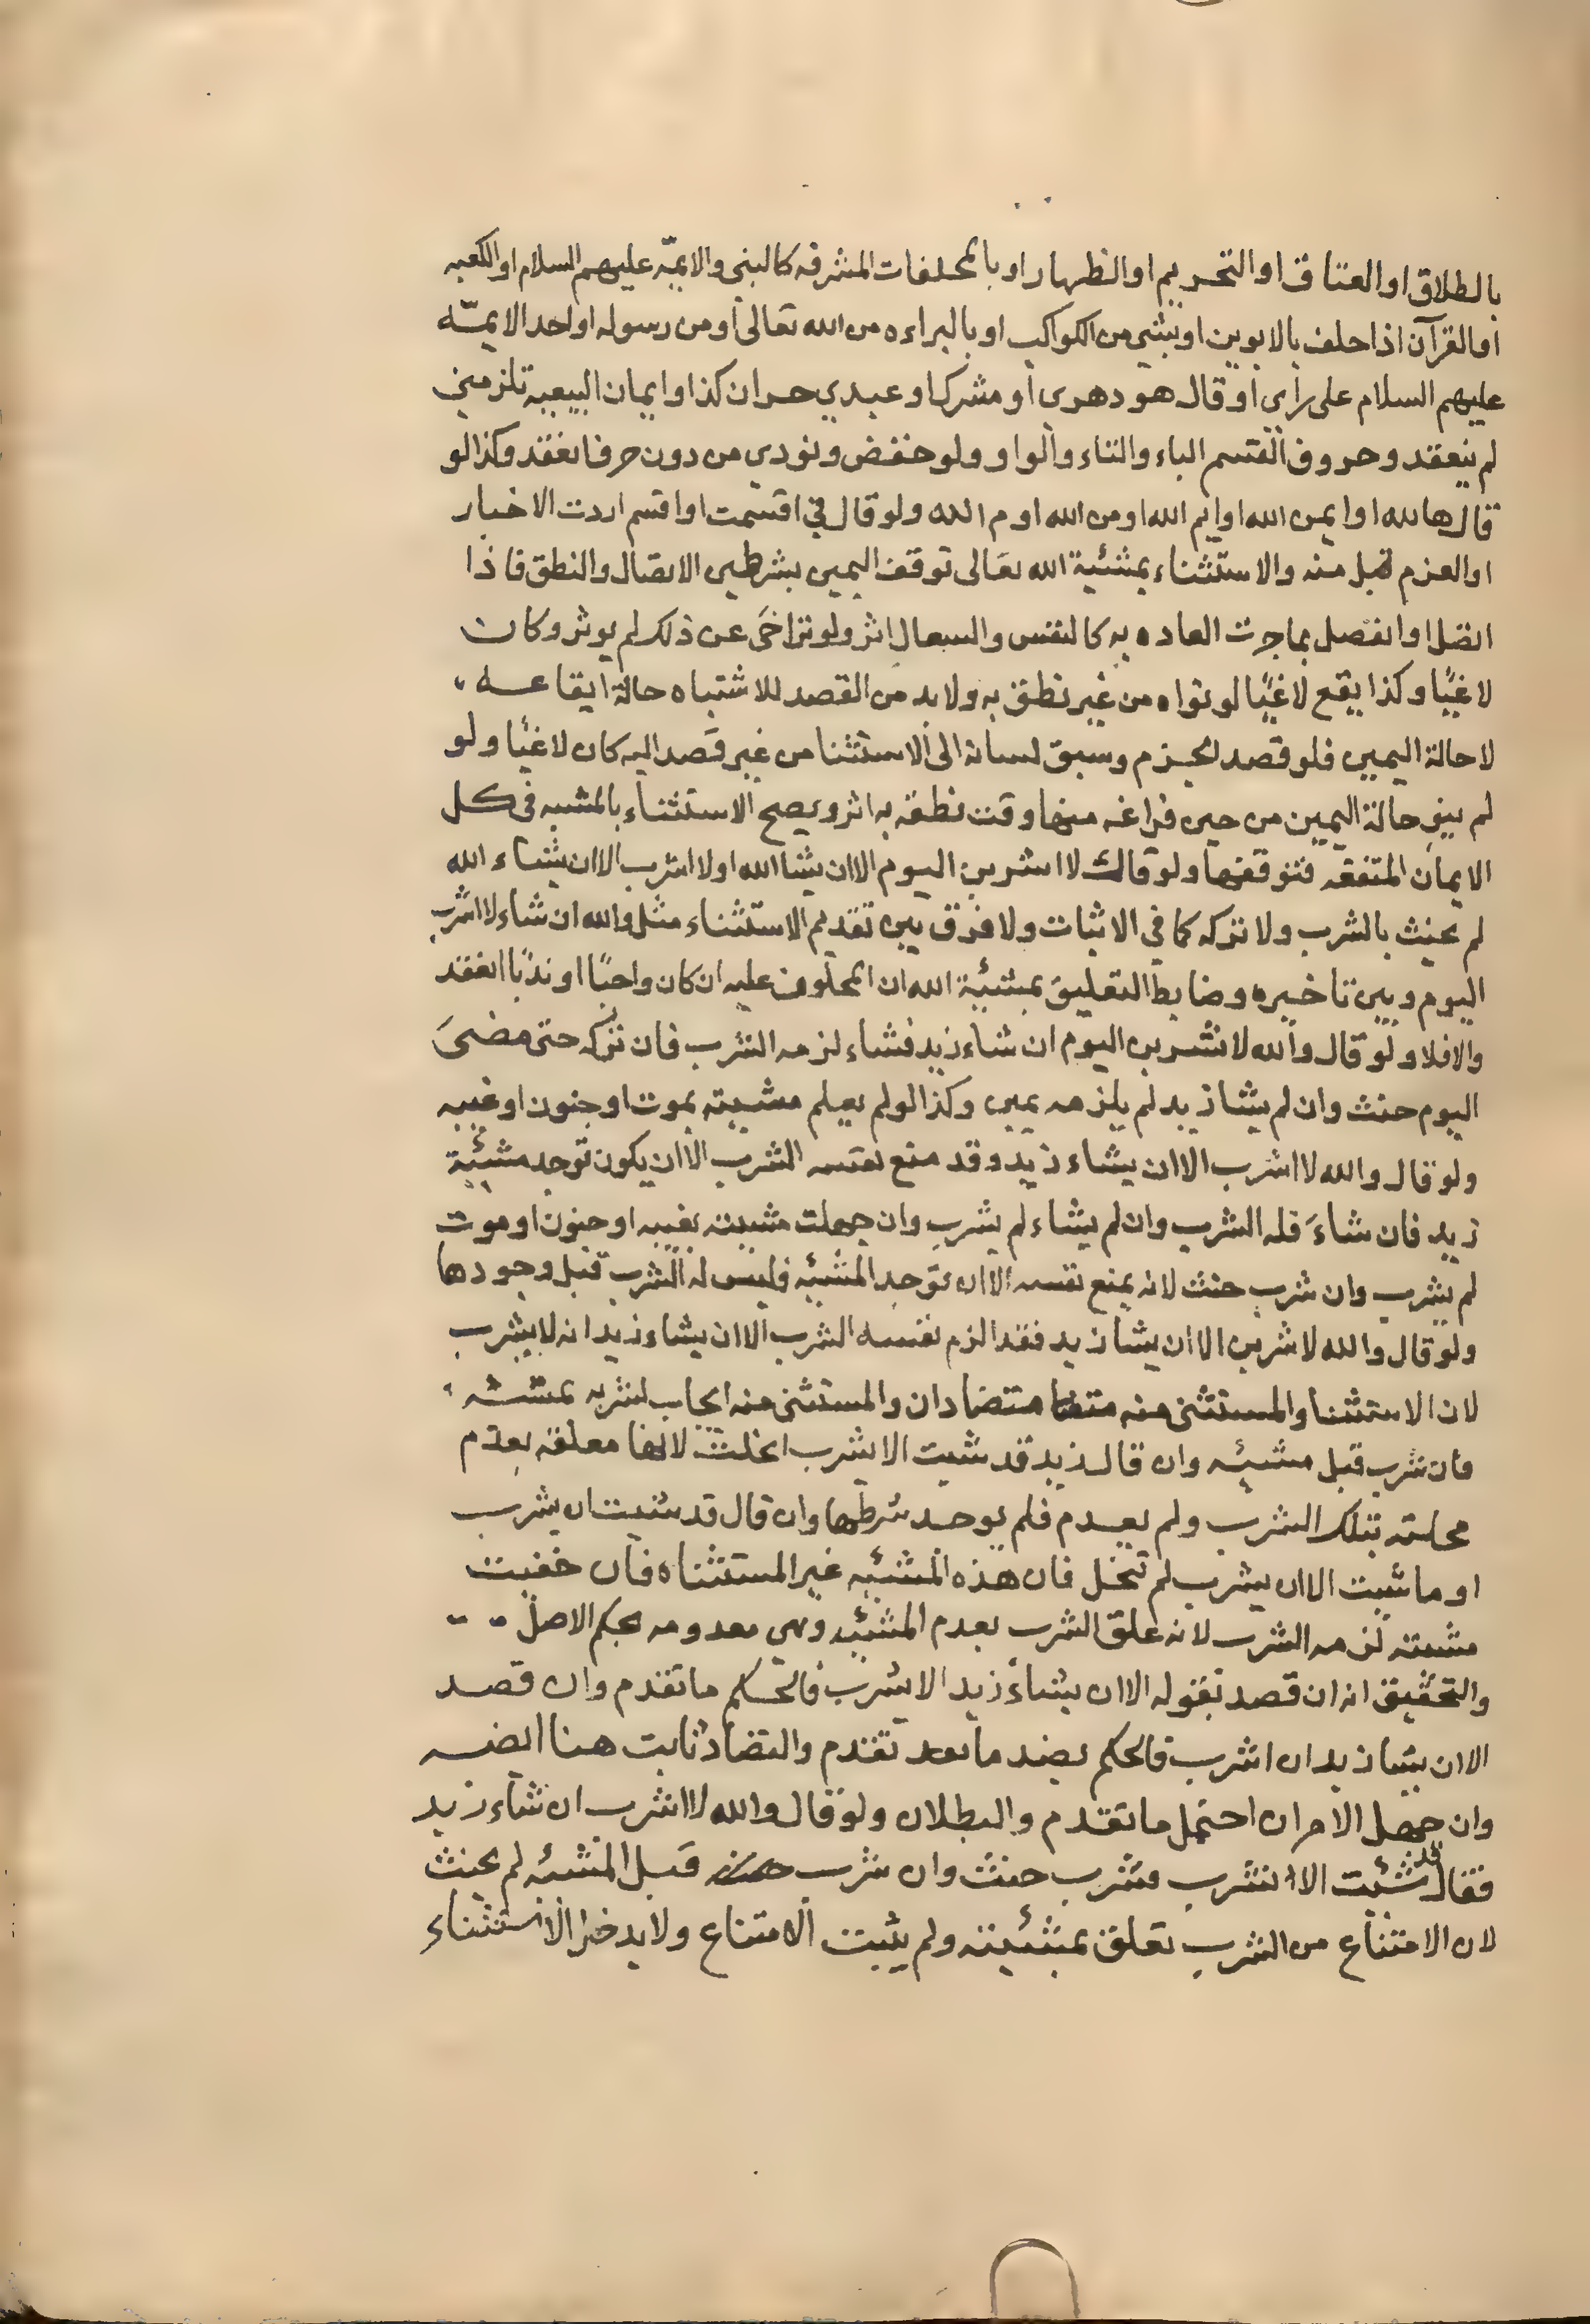 بالطلاق او العتاق او التحريم او الظهار او بالمخلفات المشرفه كالنبى والايمّه عليهم السلام او الكعبه
او القرآن اذا حلف بالابوين او بشى من الكواكب او بالبراءه من الله تعالى أو من رسوله او احد الايمّه
عليهم السلام على رأى أو قال هو دهرى أو مشرك او عبدي حر ان كذا وايمان البيعه تلزمينى
لم ينعقد وحروف القسم الباء والتاء والواو ولو خفض ونودي من دون حرف انعقد وكذا لو
قال هالله او ايمن الله او ايم الله او من الله او م الله ولو قال في اقسمت او اقسم اردت الاخبار
او العزم قبل منه والاستثناء بمشئية الله تعالى توقف اليمين بشرطين الاتصال والنطق فاذا
اتصل او انفصل بما جرت العاده به كالنفس والسعال اثر ولو تراخى عن ذلك لم يوثر وكان
لاغيًا وكذا يقع لاغيًا لو نواه من غير نطق به ولابد من القصد للاشتباه حالة ايقاعه
لا حالة اليمين فلو قصد الجزم وسبق لسانه الى الاستثنا من غير قصد اليه كان لاغيًا ولو
لم ينو حالة اليمين من حين فراغه منها وقت نطقه به اثر ويصح الاستثناء بالمشيه فى كل
الايمان المتفقه فتوقفها ولو قال لاشربن اليوم الا ان يشا الله او لا اشرب الا ان يشاء الله
لم يحنث بالشرب ولا تركه كما في الاثبات ولا فرق بين تقديم الاستثناء مثل والله ان شاء لا اشرب
اليوم وبين تاخيره وضابط التعليق بمشئية الله ان المحلوف عليه ان كان واجبًا او ندبًا انعقد
والا فلا ولو قال والله لاشربن اليوم ان شاء زيد فشاء لزمه الشرب فان تركه حتى مضىَ
اليوم حنث وان لم يشا زيد لم يلزمه يمين وكذا لو لم يعلم مشيته بموت او جنون او غيبه
ولو قال والله لا اشرب الا ان يشاء زيد وقد منع نفسه الشرب الا ان يكون توجد مشيئة
زيد فان شاءَ فله الشرب وان لم يشاء لم يشرب وان جهلت مشيته بغيبه او جنون او موت
لم يشرب وان شرب حنث لانه يمنع نفسه الا ان توجد المشيئه فليس له الشرب قبل وجودها
ولو قال والله لاشربن الا ان يشا زيد فقد الزم نفسه الشرب الا ان يشاء زيد انه لا يشرب
لان الاستثنا والمستثنى منه متضادان والمستثنى منه ايجاب لشربه بمشئه
فان شرب قبل مشيئه وان قال زيد قد شيت الا يشرب انحلت لانها معلقه بعدم
محلته بتلك الشرب ولم يعدم فلم يوجد شرطها وان قال قد شيت ان يشرب
او ما شيت الا ان يشرب لم تنحل فان هذه المشئيه غير المستثناه فان خفيت
مشيته لزمه الشرب لانه علق الشرب بعدم المشئيه وهى معدومه بحكم الاصل
والتحقيق انه ان قصد بقوله الا ان يشاء زيد الا يشرب فالحكم ما تقدم وان قصد
الا ان يشا زيد ان اشرب فالحكم بضد ما تقدم والتضاد ثابت هنا ايضـ
وان جهل الامران احتمل ما تقدم والبطلان ولو قال والله لا اشرب ان شاء زيد
فقال قد شئيت الا تشرب فشرب حنث وان شرب قبل المشئيه لم يحنث
لان الامتناع من الشرب تعلق بمشئيته ولم يثبت الامتناع ولا يدخل الاستثناء